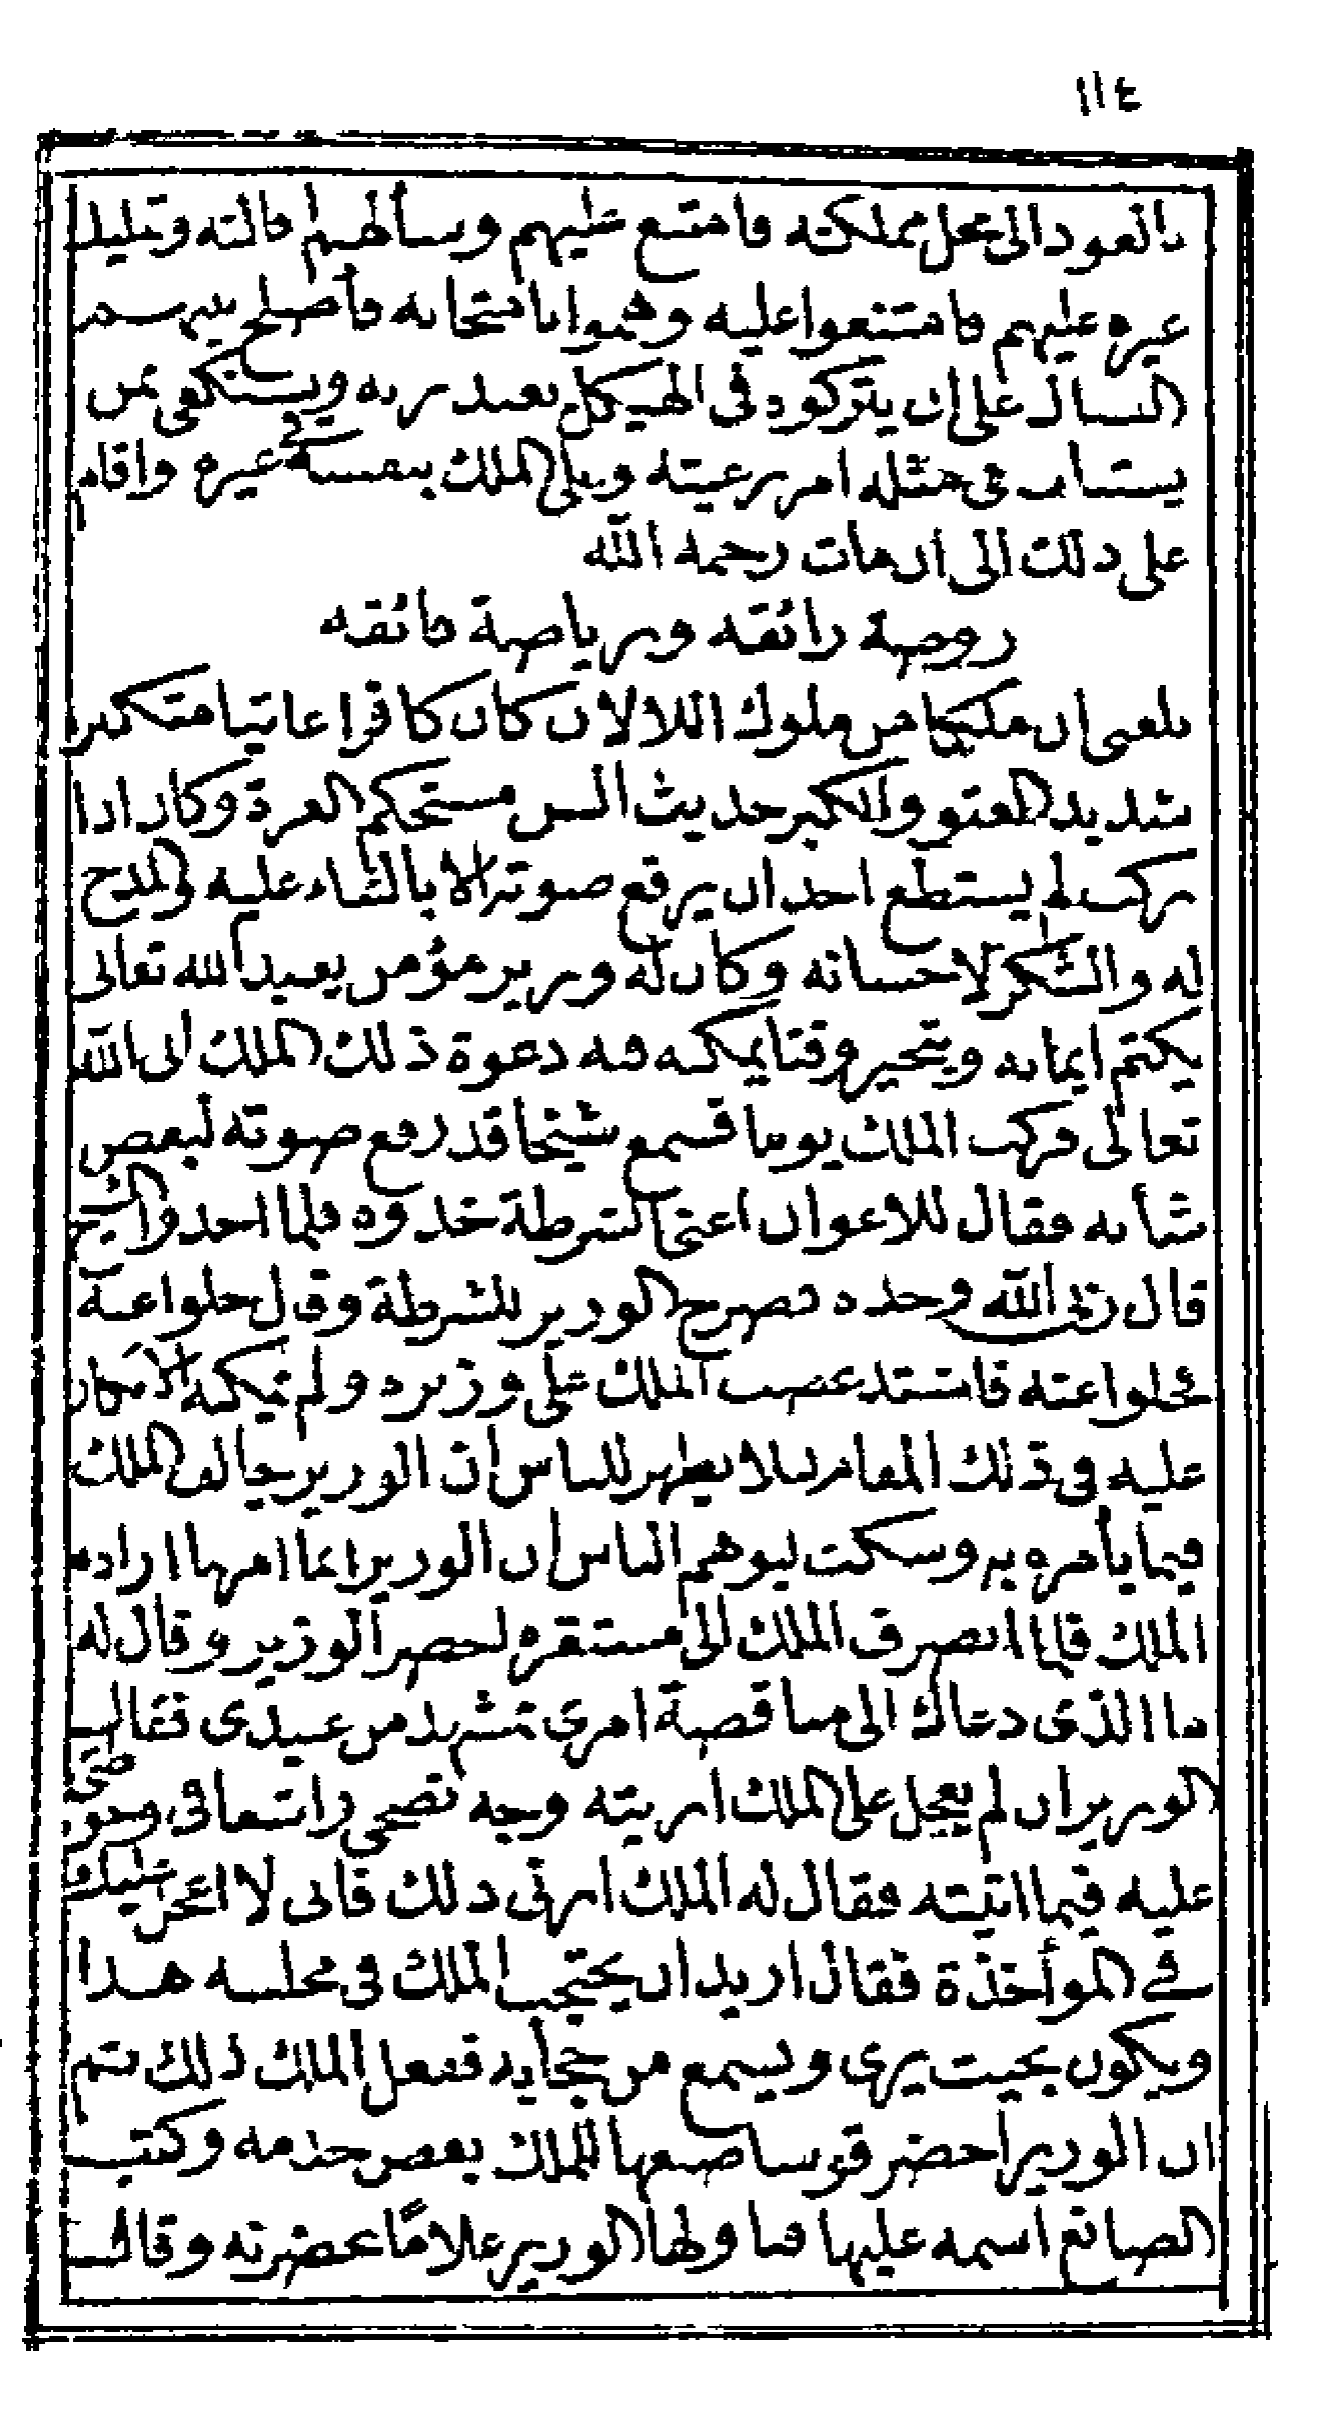 ١١٤
بالعود الى محل مملكته فامتنع عليهم وسألهم اقالته وتمليك
غيره عليهم فامتنعوا عليه وهموا بامتحانه فأصلح بينهم
السال على ان يتركوه في الهيكل يعبد ربه ويستكفي من
يستناب في مثله امر رعيته ويلى الملك بنفسه غيره واقام
على ذلك الى ان مات رحمه الله
روضة رائقه ورياضة فائقه
بلغني ان ملكا من ملوك اللالان كان كافرا عاتيا متكبرا
شديد العتو والكبر حديث السن مستحكم الغرة وكان اذا
ركب لم يستطع احد ان يرفع صوته الا بالثناء عليه والمدح
له والشكر لاحسانه وكان له وزير مؤمن يعبد الله تعالى
يكتم ايمانه ويتحير وقتا يمكنه فيه دعوة ذلك الملك الى الله
تعالى فركب الملك يوما فسمع شيخا قد رفع صوته لبعض
شأنه فقال للاعوان اعنى الشرطة خذوه فلما اخذوا الشيخ
قال ربي الله وحده فصرخ الوزير للشرطة وقال خلوا عنه
فخلوا عنه فاشتد غضب الملك على وزيره ولم يمكنه الانكار
عليه في ذلك المقام لئلا يظهر للناس ان الوزير يخالف الملك
فيما يأمره به وسكت ليوهم الناس ان الوزير انما امر بما اراده
الملك فلما انصرف الملك الى مستقره احضر الوزير وقال له
ما الذى دعاك الى مناقضة امرى بمشهد من عبيدى فقال
الوزير ان لم يعجل على الملك اريته وجه نصحى واشفاقى وحنوى
عليه فيما اتيته فقال له الملك ارنى ذلك فانى لا اعجل عليك
في المؤاخذة فقال اريد ان يحتجب الملك في مجلسه هذا
ويكون بحيث يرى ويسمع من حجابه ففعل الملك ذلك ثم
ان الوزير احضر قوسا صنعها للملك بعض خدمه وكتب
الصانع اسمه عليها فناولها الوزير غلامًا بحضرته وقال